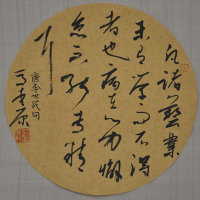 凡诸艺業
未有学而不得
者也病在心力懈
怠不能专精
耳
唐李世民句